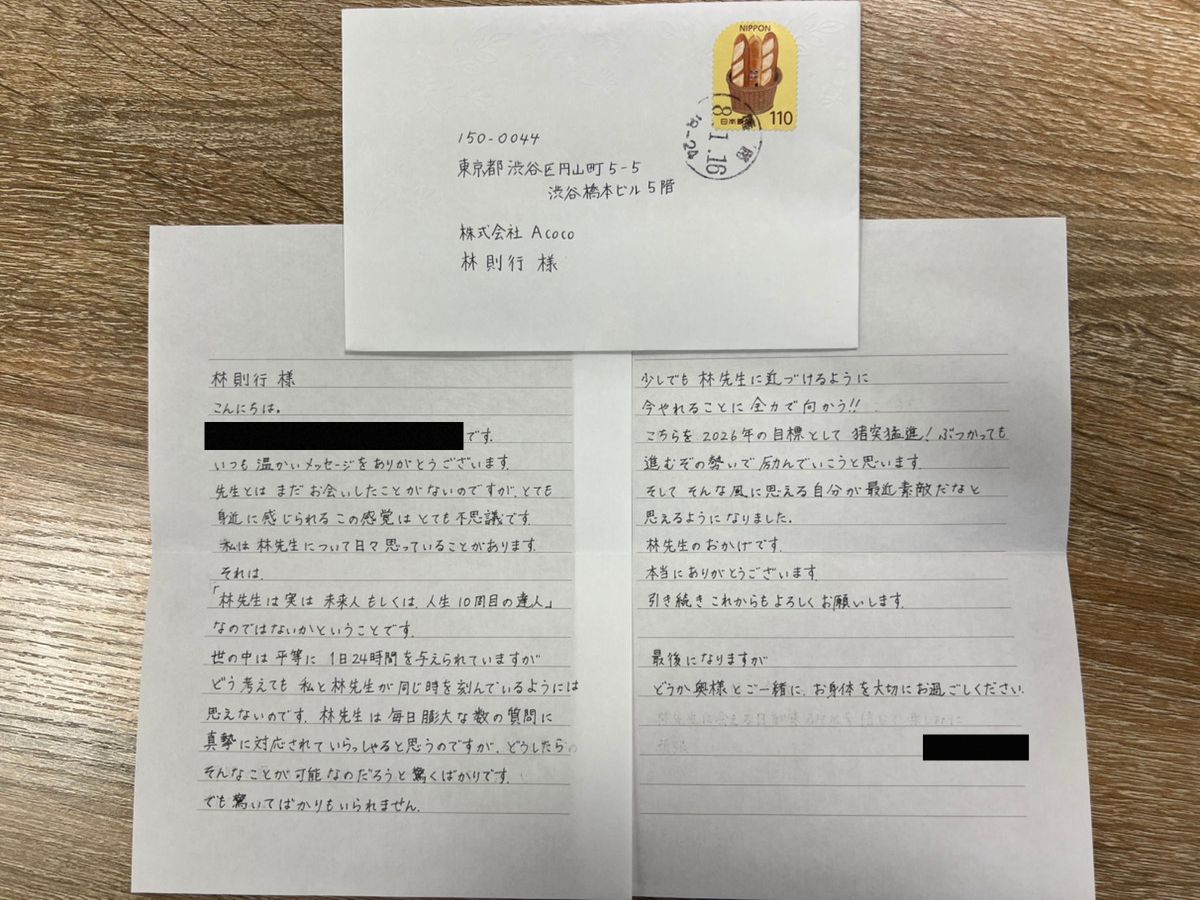 NIPPON
110
日本郵便
8.1.16
18-24
150-0044
東京都渋谷区円山町5-5
渋谷橋本ビル5階
株式会社 Acoco
林則行 様
林則行 様
こんにちは。
です。
いつも温かいメッセージをありがとうございます。
先生とは まだお会いしたことがないのですが、とても
身近に感じられる この感覚は とても不思議です。
私は 林先生について日々思っていることがあります。
それは、
「林先生は実は 未来人 もしくは、人生10周目の達人」
なのではないかということです。
世の中は 平等に 1日24時間を与えられていますが
どう考えても 私と林先生が同じ時を刻んでいるようには
思えないのです。林先生は 毎日膨大な数の質問に
真摯に対応されていらっしゃると思うのですが、どうしたら
そんなことが可能なのだろうと驚くばかりです。
でも驚いてばかりもいられません。
少しでも 林先生に近づけるように
今やれることに 全力で向かう!!
こちらを 2026年の目標として 猪突猛進! ぶつかっても
進むぞの勢いで 励んでいこうと思います。
そして そんな風に思える自分が最近素敵だなと
思えるようになりました。
林先生のおかげです。
本当にありがとうございます。
引き続き これからもよろしくお願いします。
最後になりますが
どうか奥様とご一緒に、お身体を大切にお過ごしください。